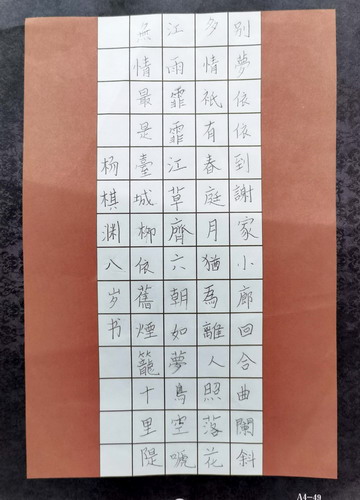 別夢依依到謝家小廊回合曲闌斜
多情祇有春庭月猶為離人照落花
江雨霏霏江草齊六朝如夢鳥空啼
無情最是臺城柳依舊煙籠十里隄
杨棋渊八岁书
A4-49